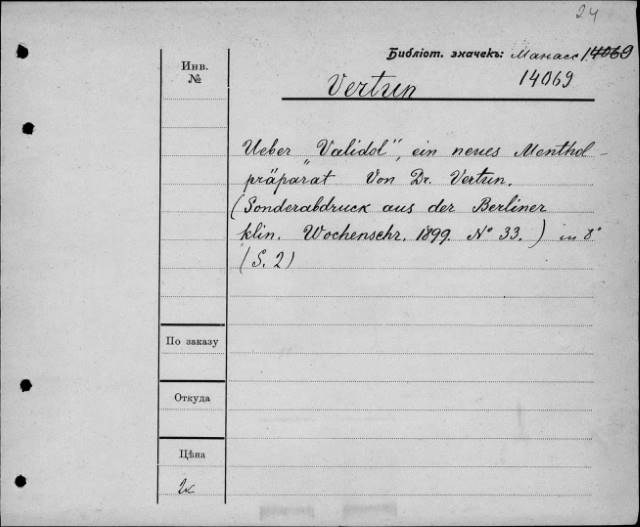 24
Библіот. значекъ: Манасс 14069
14069
Инв.
№
Vertun
Ueber „Validol“, ein neues Menthol-
präparat Von Dr. Vertun.
(Sonderabdruck aus der Berliner
klin. Wochenschr. 1899. № 33.) in 8°
(S. 2)
По заказу
Откуда
Цѣна